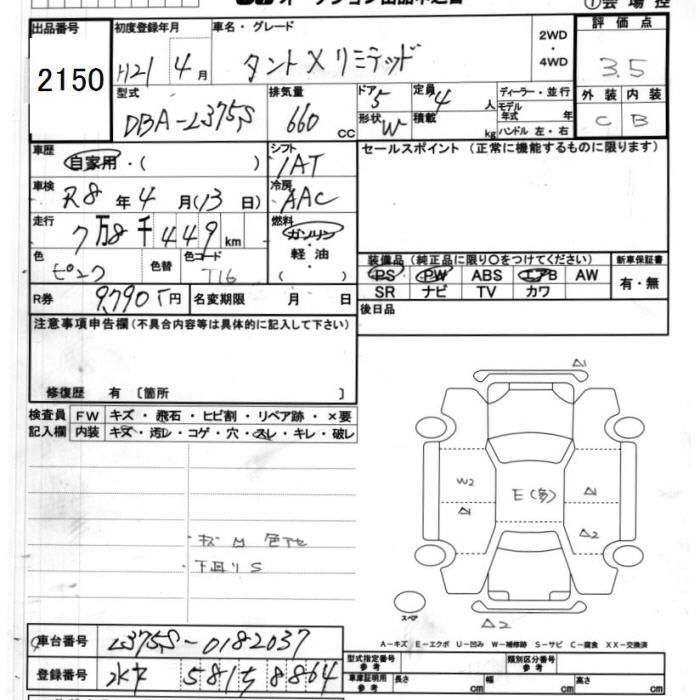 出品番号 初度登録年月 車名・グレード 2WD・4WD 評価点
2150 H21年4月 タントXリミテッド 3.5
型式 排気量 ドア 5 定員 4人 ディーラー・並行 外装 内装
DBA-L375S 660cc 形状 W 積載 kg モデル年式 年 ハンドル 左・右 C B
車歴 自家用・( ) シフト IAT セールスポイント (正常に機能するものに限ります)
車検 R8年4月(13日) 冷房 AAC
走行 7万8千449km 燃料 ガソリン・軽油・( )
色 ピンク 色替 色コード T16
装備品 (純正品に限り○をつけてください) 新車保証書
PS PW ABS エアB AW 有・無
SR ナビ TV カワ
R券 9790円 名変期限 月 日 後日品
注意事項申告欄(不具合内容等は具体的に記入して下さい)
修復歴 有 〔箇所 〕
検査員 FW キズ・飛石・ヒビ割・リペア跡・×要
記入欄 内装 キズ・汚レ・コゲ・穴・スレ・キレ・破レ
下回りS
A1
W2 E(多) A1
A1 A2
スペア
A2
A-キズ E-エクボ U-凹み W-補修跡 S-サビ C-腐食 XX-交換済
車台番号 L375S-0182037
登録番号 水戸 581 ち 8864
型式指定番号 参考 類別区分番号 参考
車庫証明用 参考 長さ cm 幅 cm 高さ cm